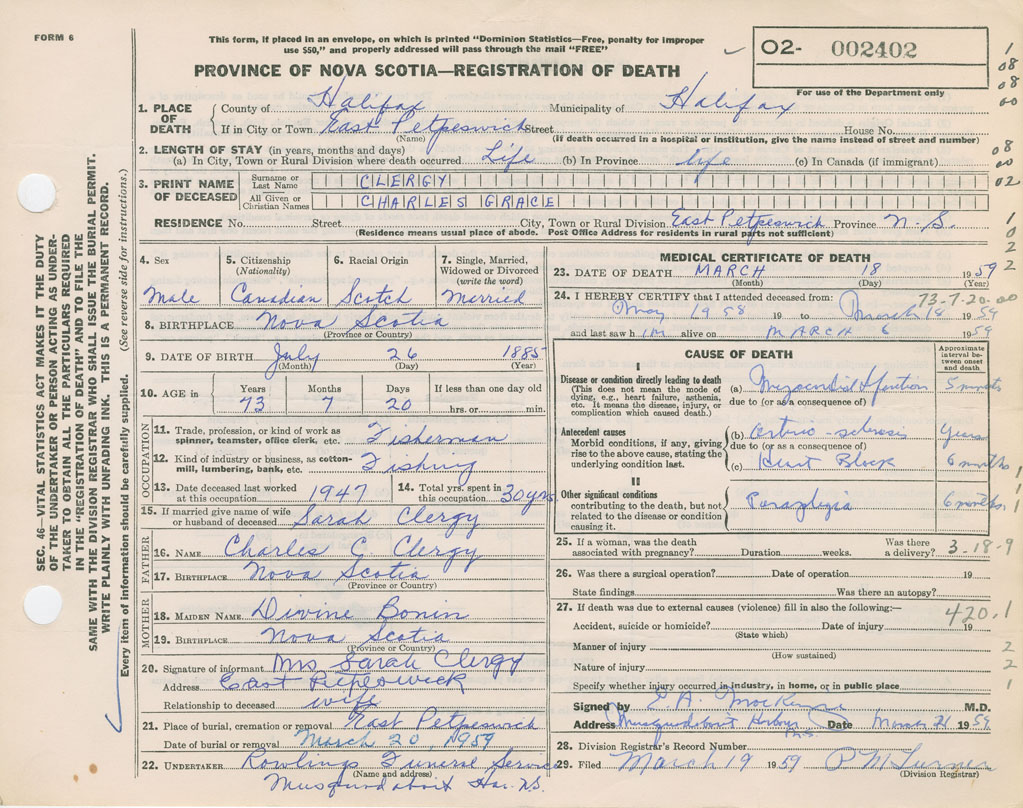 FORM 6
This form, if placed in an envelope, on which is printed "Dominion Statistics—Free, penalty for improper
use $50," and properly addressed will pass through the mail "FREE"
02- 002402
For use of the Department only
PROVINCE OF NOVA SCOTIA—REGISTRATION OF DEATH
1. PLACE OF DEATH County of Halifax Municipality of Halifax
If in City or Town East Petpeswick Street House No.
(Name) (If death occurred in a hospital or institution, give the name instead of street and number)
2. LENGTH OF STAY (in years, months and days)
(a) In City, Town or Rural Division where death occurred Life (b) In Province life (c) In Canada (if immigrant)
3. PRINT NAME OF DECEASED Surname or Last Name CLERGY
All Given or Christian Names CHARLES GRACE
RESIDENCE No. Street City, Town or Rural Division East Petpeswick Province N.S.
(Residence means usual place of abode. Post Office Address for residents in rural parts not sufficient)
4. Sex Male
5. Citizenship (Nationality) Canadian
6. Racial Origin Scotch
7. Single, Married, Widowed or Divorced (write the word) Married
8. BIRTHPLACE Nova Scotia
(Province or Country)
9. DATE OF BIRTH July 26 1885
(Month) (Day) (Year)
10. AGE in Years Months Days If less than one day old
73 7 20 hrs. or min.
OCCUPATION
11. Trade, profession, or kind of work as spinner, teamster, office clerk, etc. Fisherman
12. Kind of industry or business, as cotton-mill, lumbering, bank, etc. Fishing
13. Date deceased last worked at this occupation 1947
14. Total yrs. spent in this occupation 30 yrs
15. If married give name of wife or husband of deceased Sarah Clergy
FATHER
16. NAME Charles G Clergy
17. BIRTHPLACE Nova Scotia
(Province or Country)
MOTHER
18. MAIDEN NAME Divine Bonin
19. BIRTHPLACE Nova Scotia
(Province or Country)
20. Signature of informant Mrs Sarah Clergy
Address East Petpeswick
Relationship to deceased wife
21. Place of burial, cremation or removal East Petpeswick
Date of burial or removal March 20, 1959
22. UNDERTAKER Rowlings Funeral Service
(Name and address)
Musquodoboit Har. N.S.
MEDICAL CERTIFICATE OF DEATH
23. DATE OF DEATH MARCH 18 1959
(Month) (Day) (Year)
73-7-20-00
24. I HEREBY CERTIFY that I attended deceased from:
May 1958 19 to March 18 1959
and last saw h im alive on MARCH 6 1959
CAUSE OF DEATH
Approximate interval between onset and death
I
Disease or condition directly leading to death
(This does not mean the mode of dying, e.g., heart failure, asthenia, etc. It means the disease, injury, or complication which caused death.)
(a) Myocardial Infarction 5 minutes
due to (or as a consequence of)
Antecedent causes
Morbid conditions, if any, giving rise to the above cause, stating the underlying condition last.
(b) Arterio-sclerosis years
due to (or as a consequence of)
(c) Heart Block 6 months
II
Other significant conditions
contributing to the death, but not related to the disease or condition causing it.
Paraplegia 6 months
25. If a woman, was the death associated with pregnancy? Duration weeks. Was there a delivery? 3-18-9
26. Was there a surgical operation? Date of operation 19
State findings Was there an autopsy?
27. If death was due to external causes (violence) fill in also the following:—
420.1
Accident, suicide or homicide? Date of injury 19
(State which)
Manner of injury
(How sustained)
Nature of injury
Specify whether injury occurred in industry, in home, or in public place
Signed by E. A. MacKenzie M.D.
Address Musquodoboit Harbour N.S. Date March 1959
28. Division Registrar's Record Number
29. Filed March 19 1959 P M Turner
(Division Registrar)
SEC. 46—VITAL STATISTICS ACT MAKES IT THE DUTY
OF THE UNDERTAKER OR PERSON ACTING AS UNDER-
TAKER TO OBTAIN ALL THE PARTICULARS REQUIRED
IN THE "REGISTRATION OF DEATH" AND TO FILE THE
SAME WITH THE DIVISION REGISTRAR WHO SHALL ISSUE THE BURIAL PERMIT.
WRITE PLAINLY WITH UNFADING INK. THIS IS A PERMANENT RECORD.
Every item of information should be carefully supplied. (See reverse side for instructions.)
1
08
08
00
08
00
02
1
0
2
2
1
1
1
2
2
1